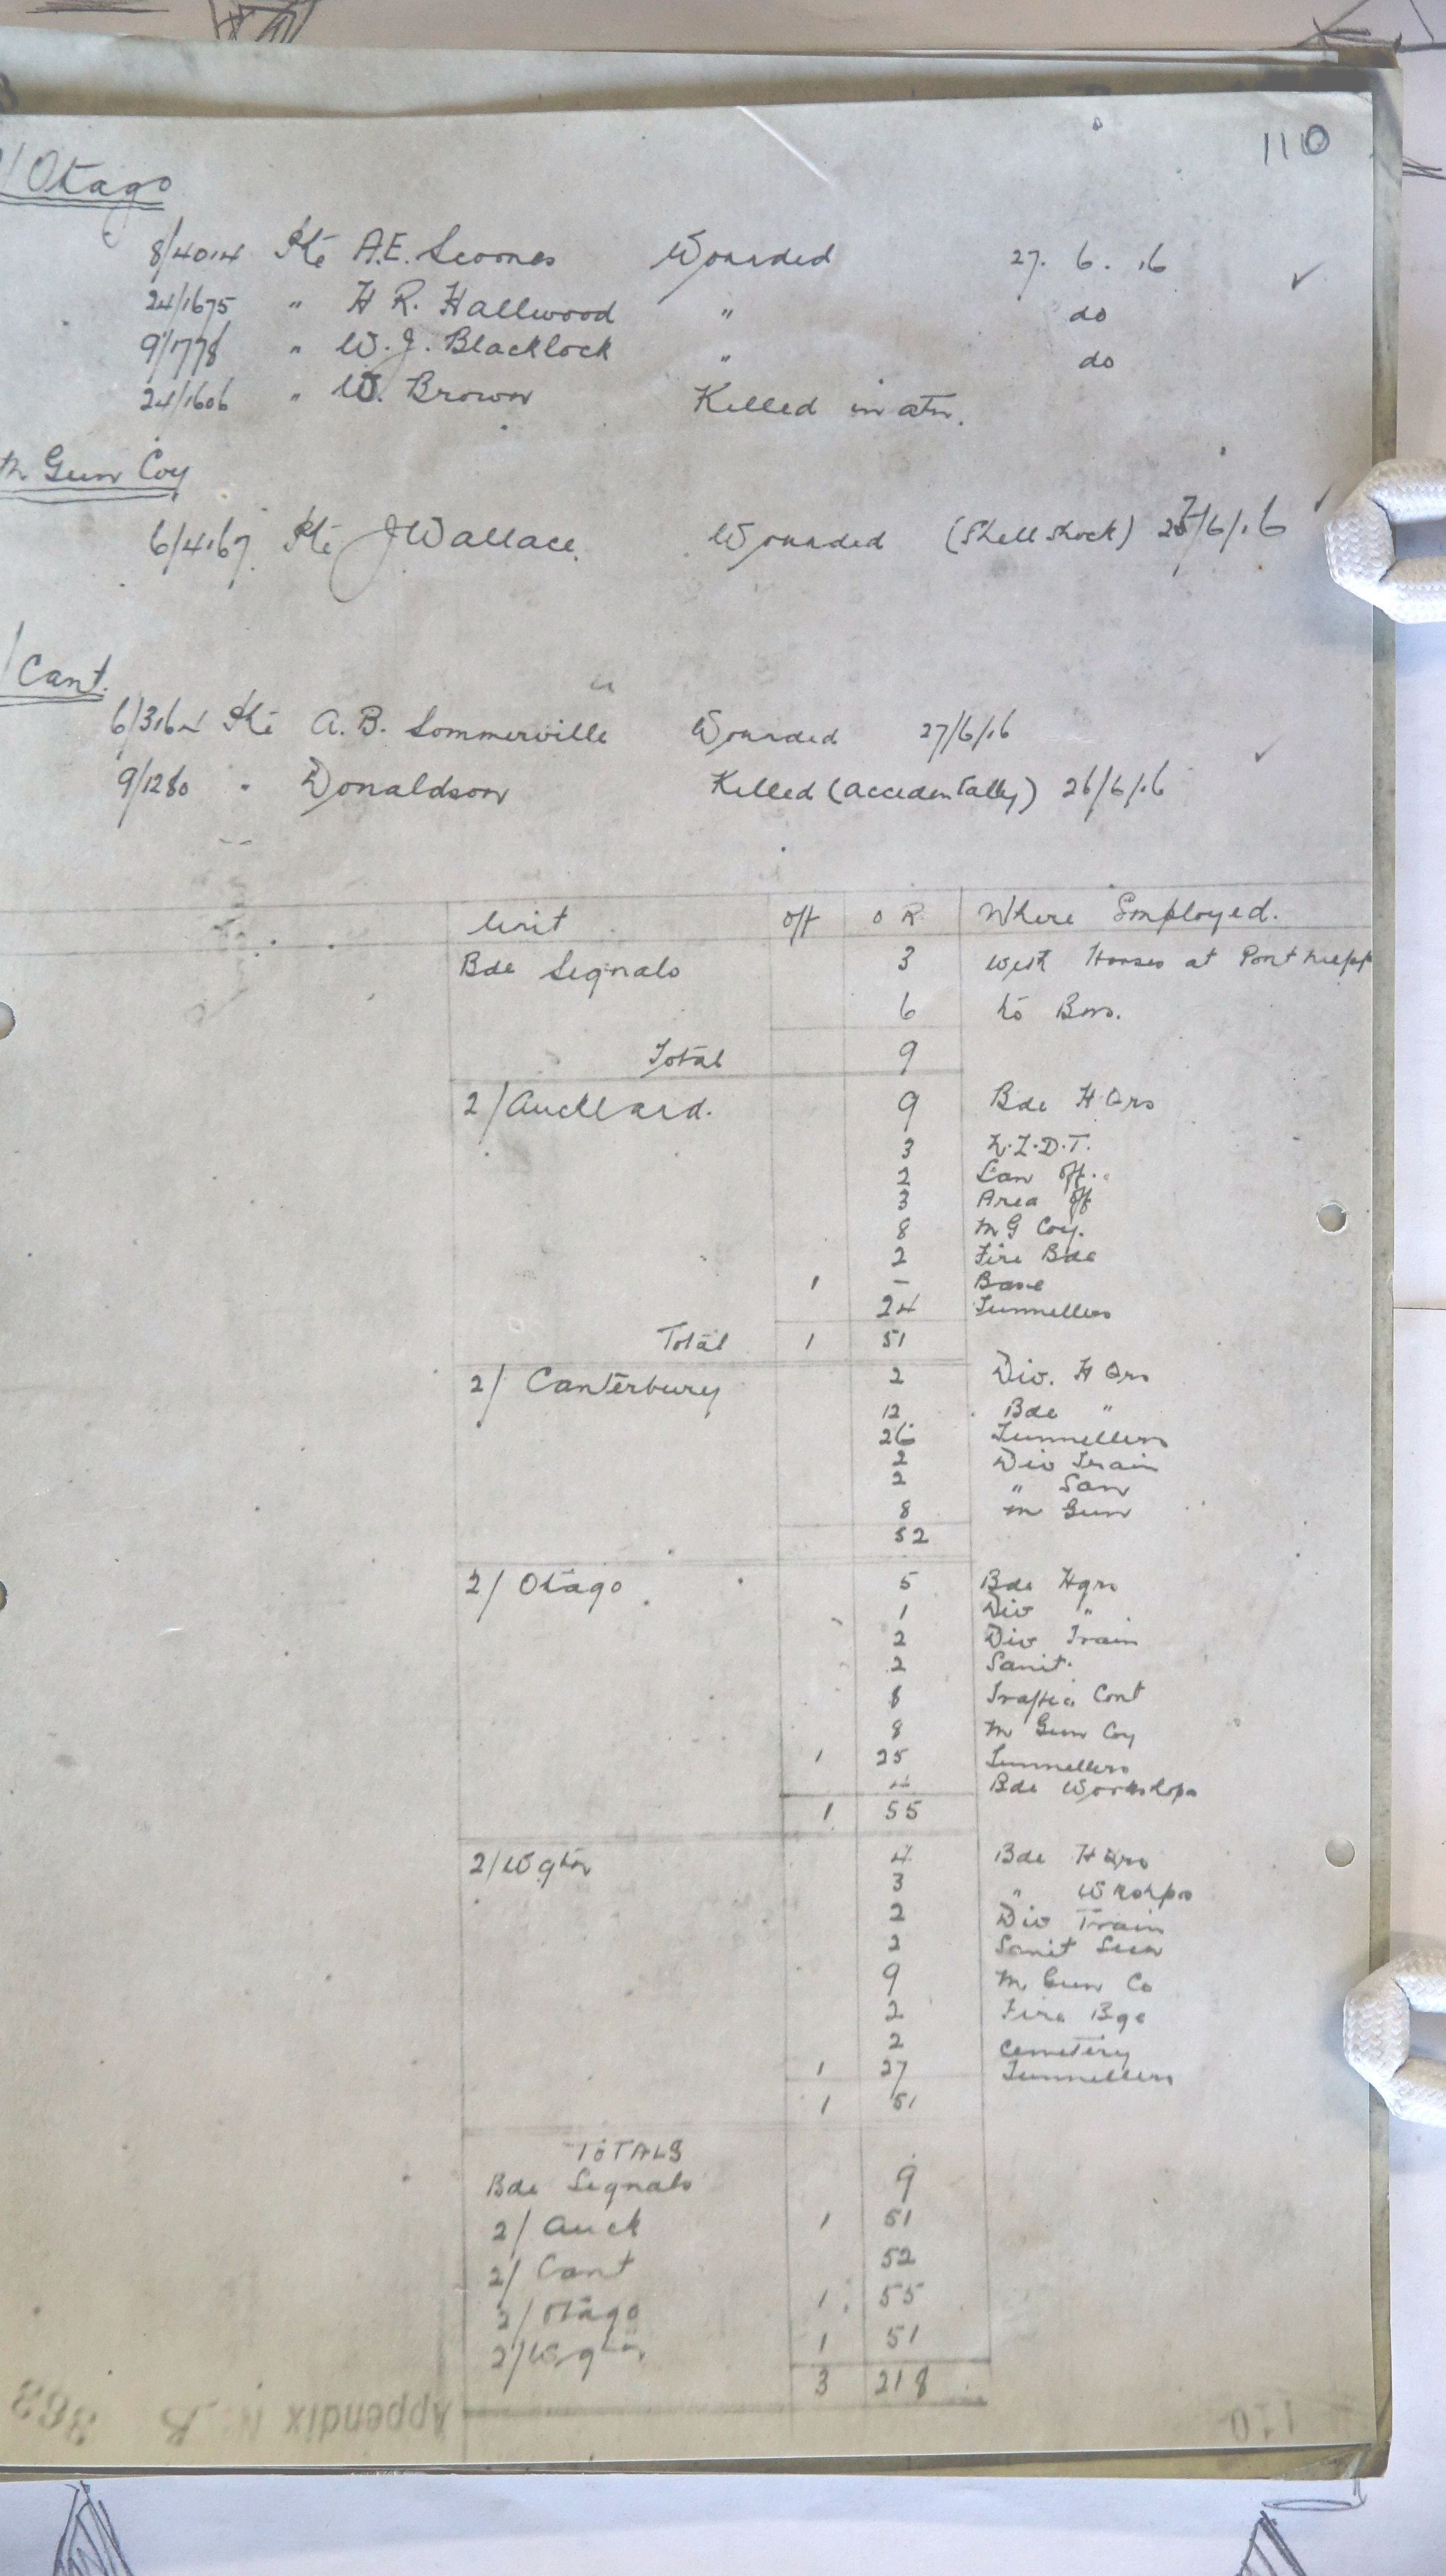 110
/Otago
8/4014 Pte A.E. Scoones Wounded 27. 6. 16
24/1675 " H R. Hallwood " do
9/778 " W. J. Blacklock " do
24/1606 " W. Brown Killed in atn.
M Gun Coy
6/4167 Pte J Wallace. Wounded (Shell shock) 27/6/16
/Cant.
6/3162 Pte A. B. Sommerville Wounded 27/6/16
9/1280 " Donaldson Killed (accidentally) 26/6/16
Unit Off O R Where Employed.
Bde Signals 3 with Horses at Pont
6 to Bns.
Total 9
2/Auckland. 9 Bde H Qrs
3 N.Z.D.T.
2 San Off.
3 Area Off
8 M G Coy.
2 Fire Bde
1 - Base
24 Tunnellers
Total 1 51
2/ Canterbury 2 Div. H Qrs
12 Bde "
26 Tunnellers
2 Div Train
2 " San
8 M Gun
52
2/ Otago. 5 Bde Hqrs
1 Div "
2 Div Train
2 Sanit.
8 Traffic Cont
8 M Gun Coy
1 25 Tunnellers
4 Bde Workshops
1 55
2/Wgtn 4 Bde H Qrs
3 " Wkshps
2 Div Train
2 Sanit Secn
9 M Gun Co
2 Fire Bge
2 Cemetery
1 27 Tunnellers
1 51
TOTALS
Bde Signals 9
2/ Auck 1 51
2/ Cant 52
2/ Otago 1 55
2/Wgtn 1 51
3 218
Appendix N. B 363
110